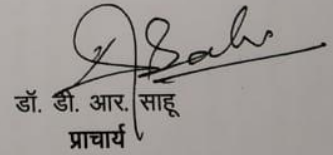 डॉ. डी. आर. साहू
प्राचार्य